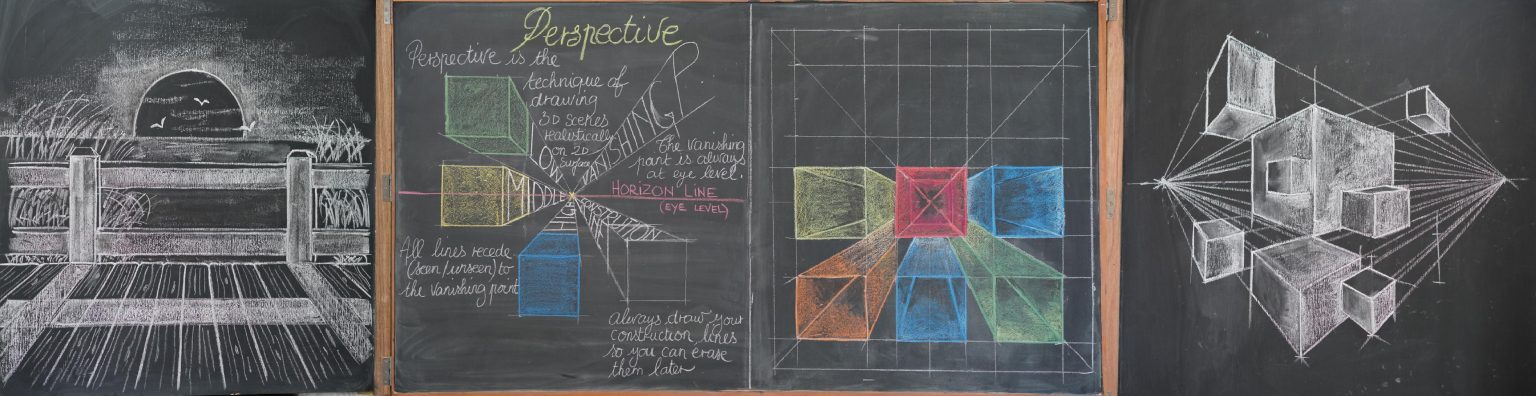 Perspective
Perspective is the
technique of
drawing
3D scenes
realistically
on 2D
surface
VANISHING P
The vanishing
point is always
at eye level!
MIDDLE
HORIZON LINE
(EYE LEVEL)
All lines recede
(seen/unseen) to
the vanishing point
Always draw your
construction lines
so you can erase
them later